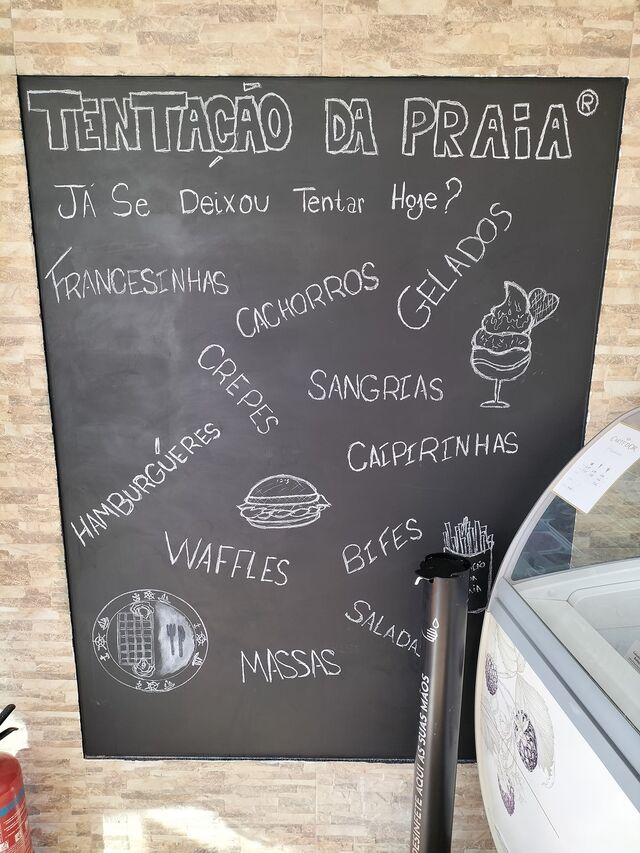 TENTAÇÃO DA PRAIA®
JÁ SE DEIXOU TENTAR HOJE?
FRANCESINHAS
CACHORROS
GELADOS
CREPES
SANGRIAS
HAMBURGÚERES
CAIPIRINHAS
WAFFLES
BIFES
SALADA
MASSAS
DESINFETE AQUI AS SUAS MÃOS